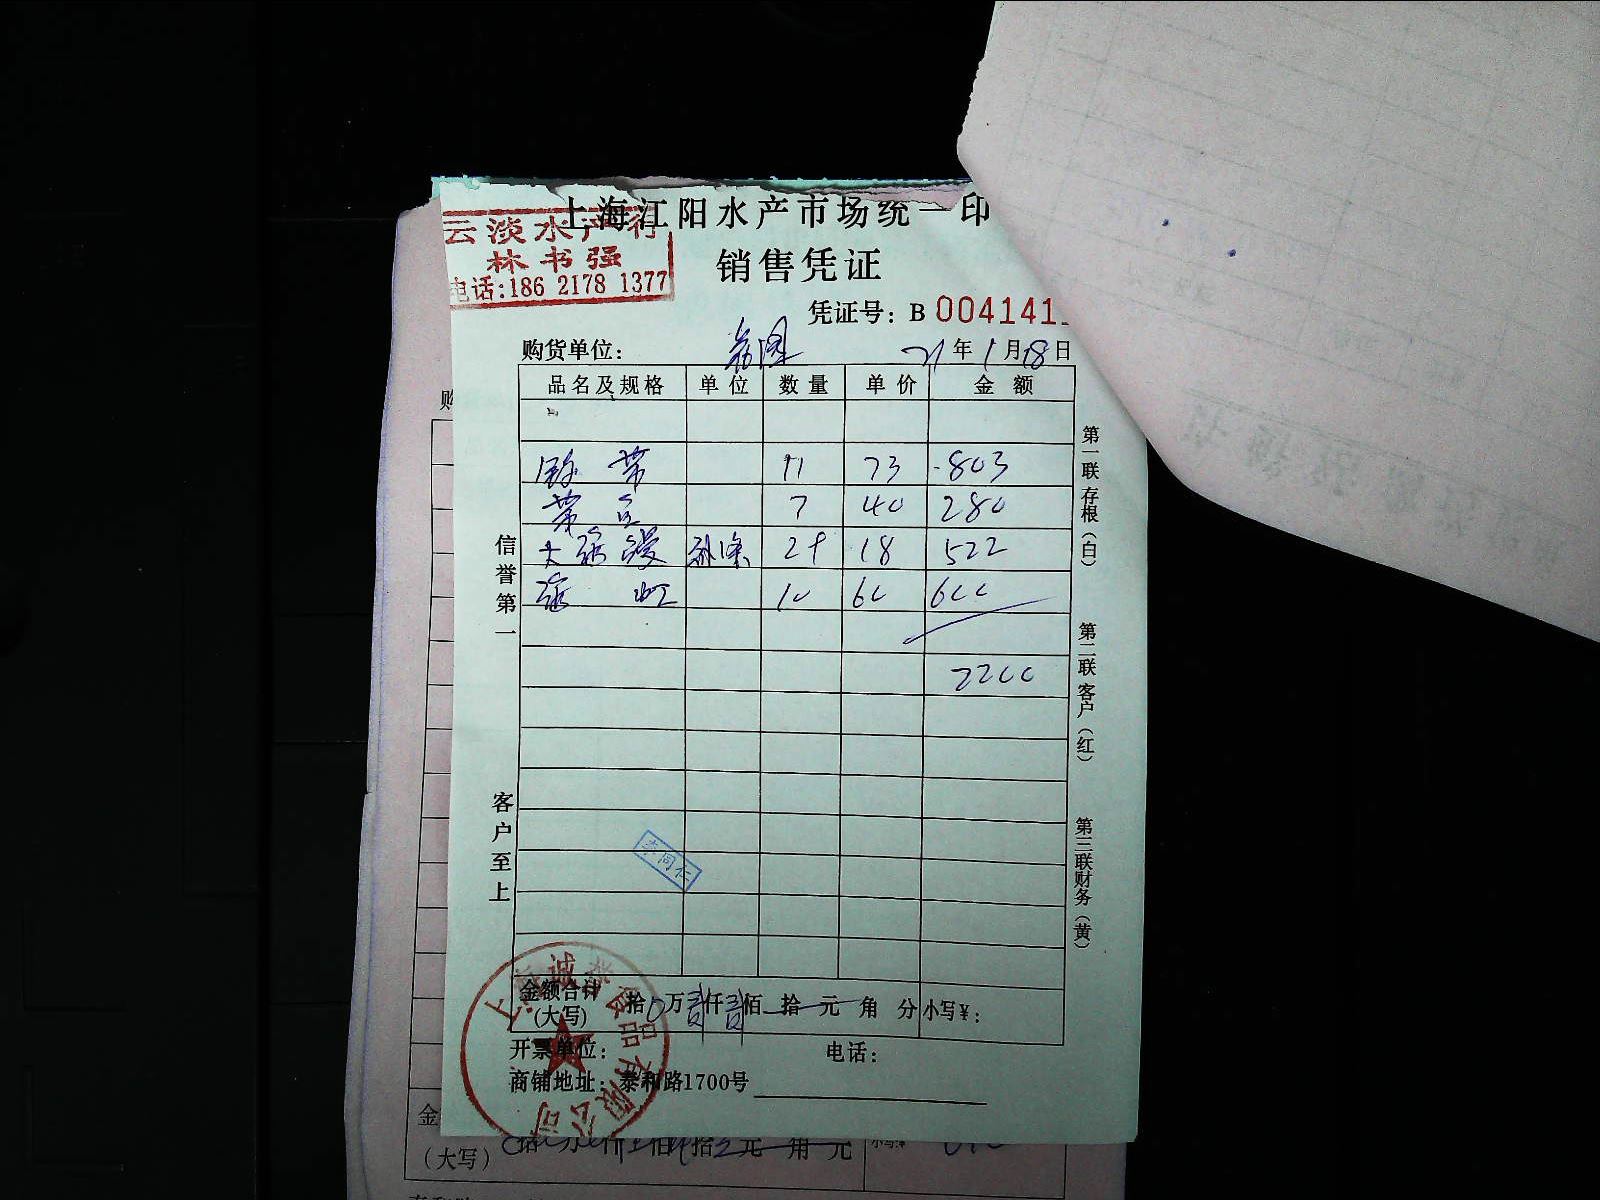 上海江阳水产市场统一印
云淡水产行
林书强
电话:186 2178 1377
销售凭证
凭证号: B 004141
购货单位: 21年1月18日
品名及规格 单位 数量 单价 金额
带 11 73 803
带 7 40 280
大 29 18 522
虾 10 60 600
2200
信誉第一
客户至上
第一联 存根(白)
第二联 客户(红)
第三联 财务(黄)
李同仁
金额合计(大写) 拾0万贰仟贰佰拾元角分 小写¥:
开票单位: 电话:
商铺地址: 泰和路1700号
上海诚 食品有限公司
购
金
(大写) 拾万仟佰拾元角元 小写¥